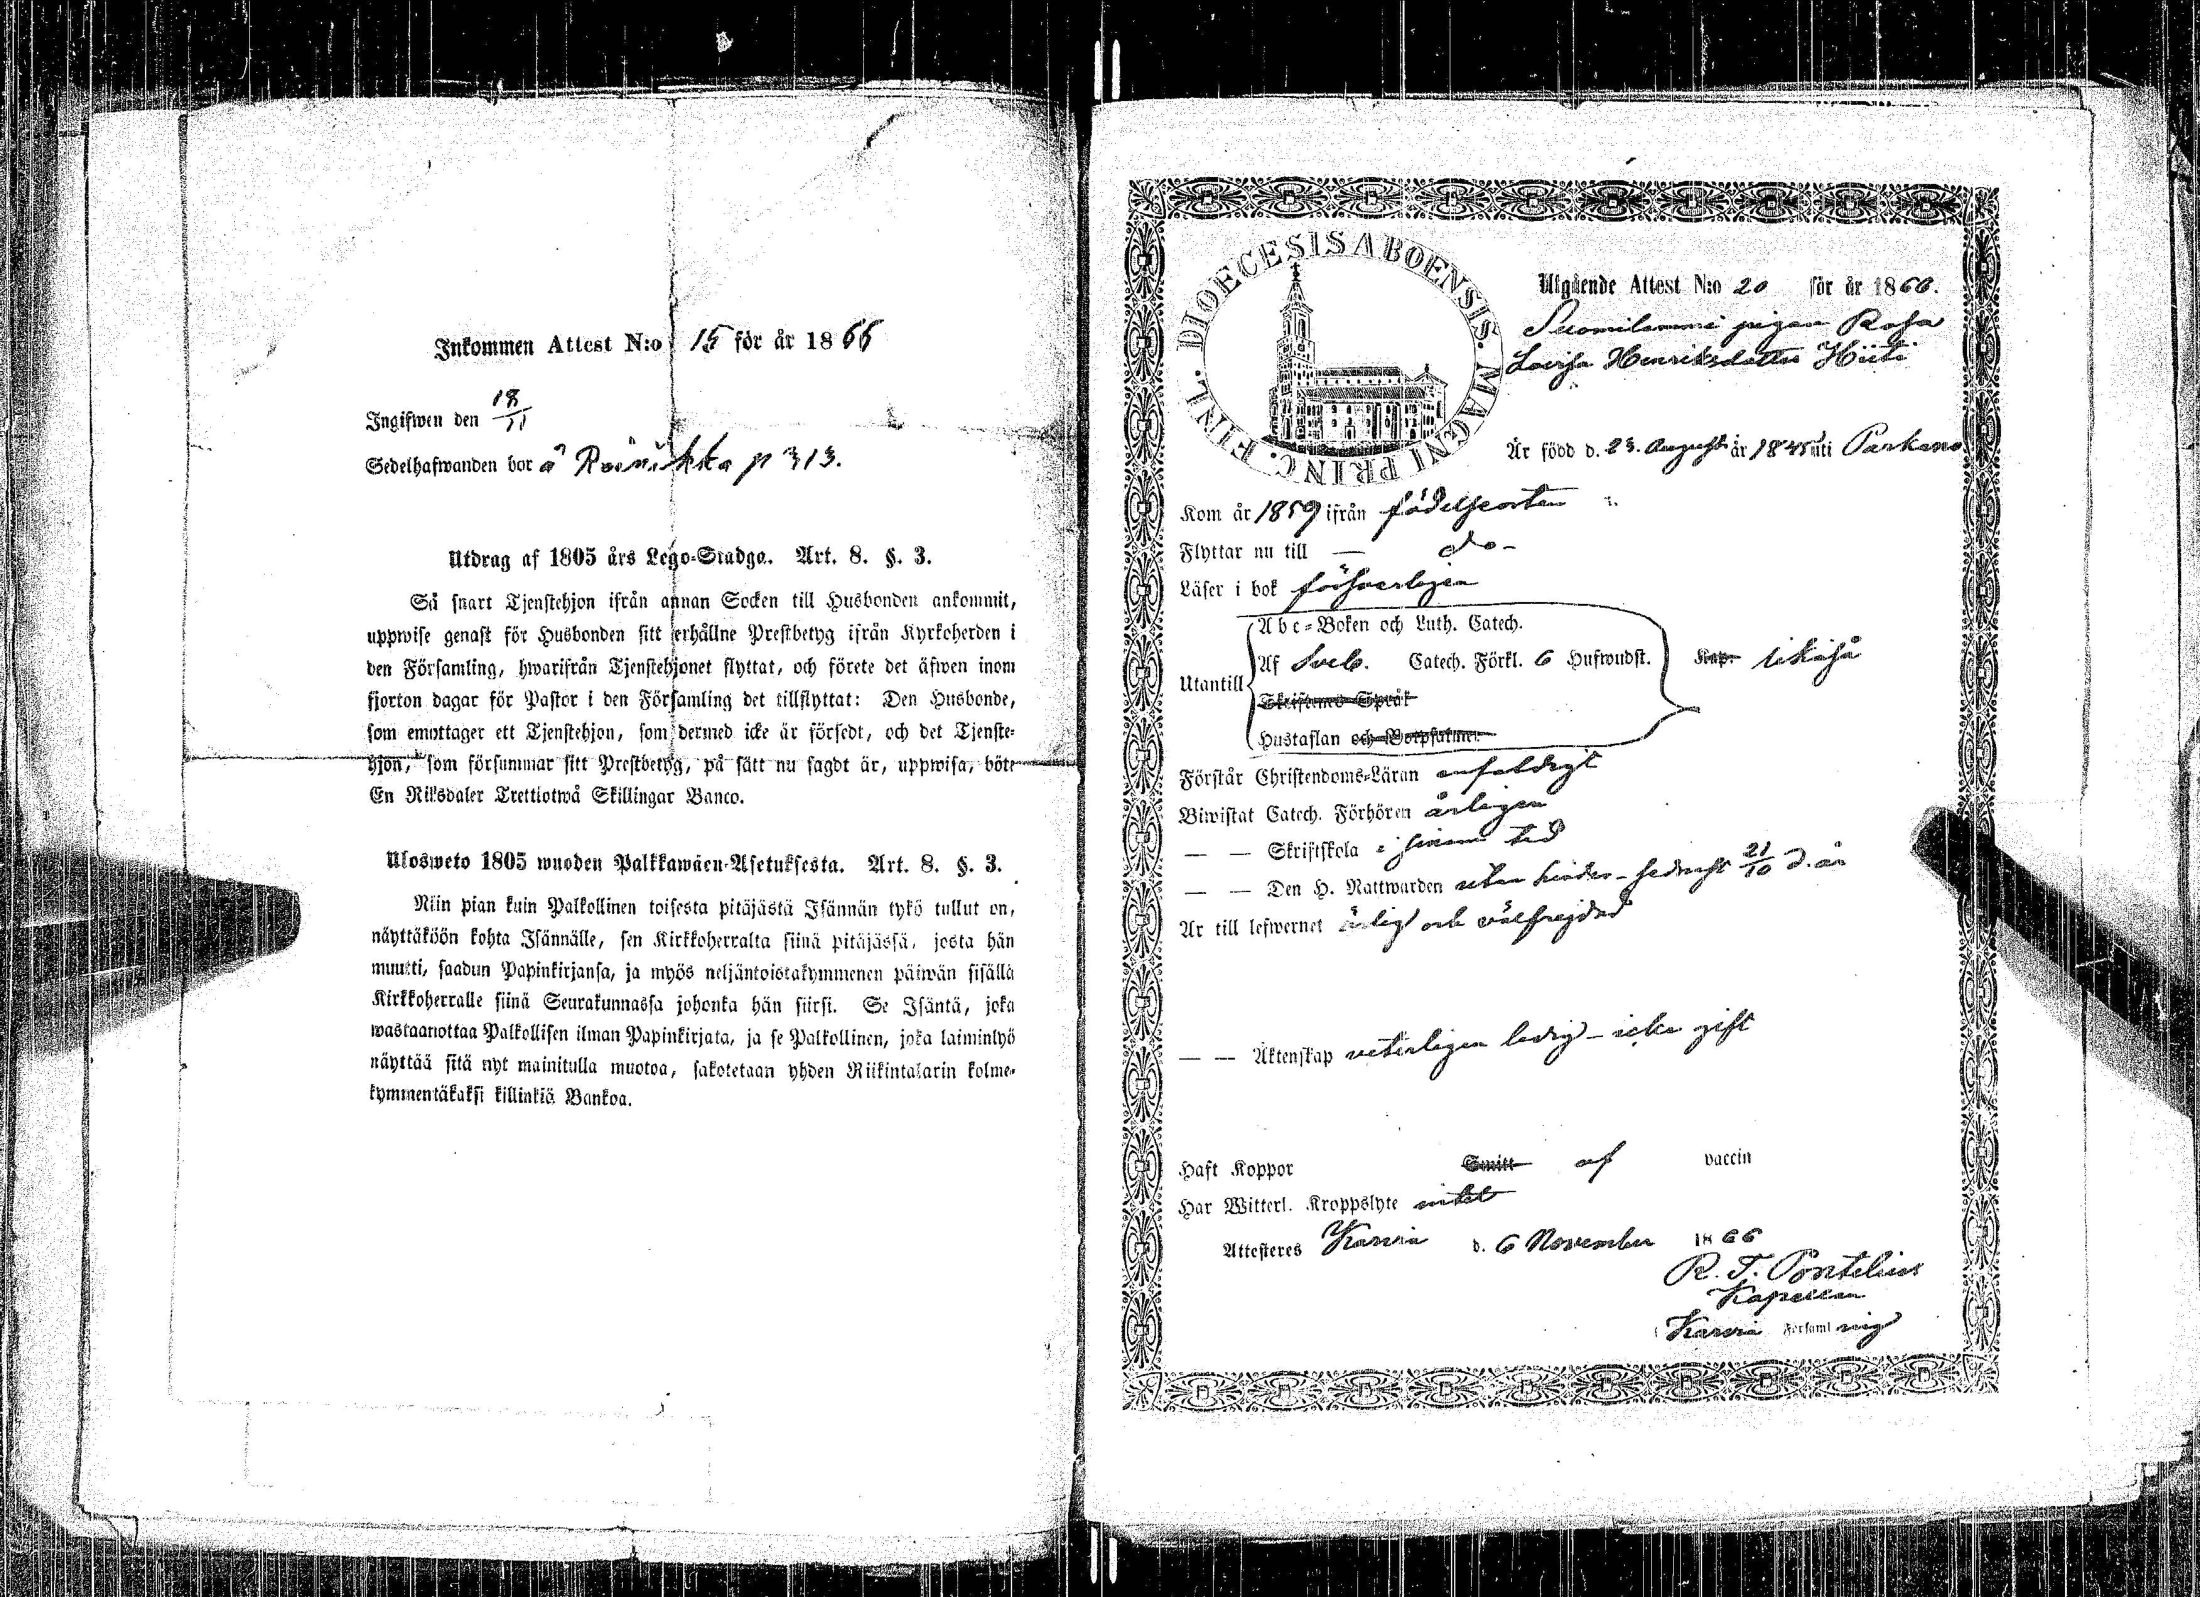 Inkommen Attest N:o 15 för år 1866
Ingifwen den 18/11
Sedelhafwanden bor å Roinikka p 313.
Utdrag af 1805 års Lego-Stadga. Art. 8. §. 3.
Så snart Tjenstehjon ifrån annan Socken till Husbonden ankommit,
uppwise genast för Husbonden sitt erhållne Prestbetyg ifrån Kyrkoherden i
den Församling, hwarifrån Tjenstehjonet flyttat, och förete det äfwen inom
fjorton dagar för Pastor i den Församling det tillflyttat: Den Husbonde,
som emottager ett Tjenstehjon, som dermed icke är försedt, och det Tjenste-
hjon, som försummar sitt Prestbetyg, på sätt nu sagdt är, uppwisa, böte
En Riksdaler Trettiotwå Skillingar Banco.
Ulosweto 1805 wuoden Palkkawäen-Asetuksesta. Art. 8. §. 3.
Niin pian kuin Palkollinen toisesta pitäjästä Isännän tykö tullut on,
näyttäköön kohta Isännälle, sen Kirkkoherralta siinä pitäjässä, josta hän
muutti, saadun Papinkirjansa, ja myös neljäntoistakymmenen päiwän sisällä
Kirkkoherralle siinä Seurakunnassa johonka hän siirsi. Se Isäntä, joka
wastaanottaa Palkollisen ilman Papinkirjata, ja se Palkollinen, joka laiminlyö
näyttää sitä nyt mainitulla muotoa, sakotetaan yhden Riikintalarin kolme-
kymmentäkaksi killinkiä Bankoa.
DIOECESIS ABOENSIS. MAGNI PRINC. FINL.
Utgående Attest N:o 20 för år 1866.
Suomilammi pigan Rosa
Lovisa Henriksdotter Hiiti
Är född d. 23 Augusti år 1845 uti Parkano
Kom år 1859 ifrån födelseorten
Flyttar nu till — do -
Läser i bok försvarligen
Abc-Boken och Luth. Catech.
Utantill Af Sveb. Catech. Förkl. 6 Hufwudst. Kap. likaså
Skriftenes Språk
Hustaflan och Botpsalmer
Förstår Christendoms-Läran enfaldigt
Biwistat Catech. Förhören årligen
— — Skriftskola i sinom tid
— — Den H. Nattwarden utan hinder - sednast 21/10 d. år
Är till lefwernet ärlig och välfrejdad
— — Äktenskap veterligen ledig - icke gift
Haft Koppor Smitt af vaccin
Har Witterl. Kroppslyte intet
Attesteres Karvia d. 6 November 1866
R. T. Pontelius
Kapellan
i Karvia Församling